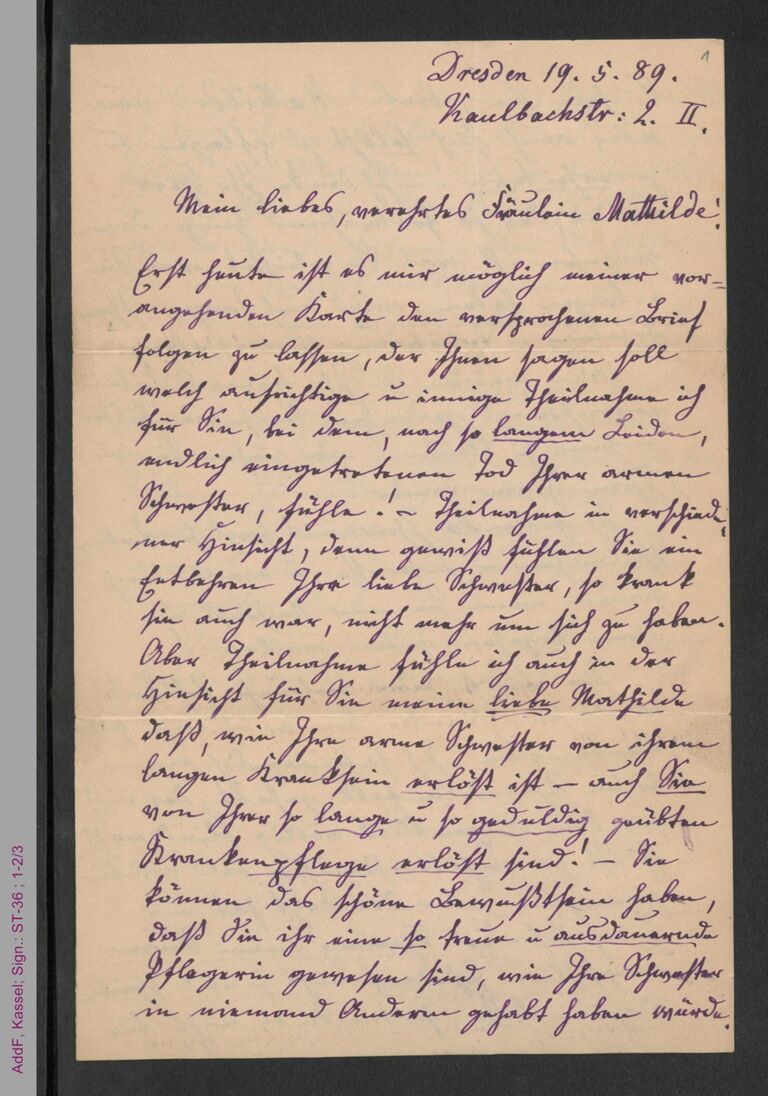 1
Dresden 19. 5. 89.
Kaulbachstr: 2. II.
Mein liebes, verehrtes Fräulein Mathilde!
Erst heute ist es mir möglich meiner vor=
angehenden Karte den versprochenen Brief
folgen zu lassen, der Ihnen sagen soll
welch aufrichtige u innige Theilnahme ich
für Sie, bei dem, nach so langem Leiden,
endlich eingetretenen Tod Ihrer armen
Schwester, fühle! – Theilnahme in verschiede
ner Hinsicht, denn gewiß fühlen Sie ein
Entbehren Ihre liebe Schwester, so krank
sie auch war, nicht mehr um sich zu haben.
Aber Theilnahme fühle ich auch in der
Hinsicht für Sie meine liebe Mathilde
daß, wie Ihre arme Schwester von ihrem
langen Kranksein erlöst ist – auch Sie
von Ihrer so lange u so geduldig geübten
Krankenpflege erlöst sind! – Sie
können das schöne Bewußtsein haben,
daß Sie ihr eine so treue u ausdauernde
Pflegerin gewesen sind, wie Ihre Schwester
in niemand Anderm gehabt haben würde.
AddF, Kassel; Sign.: ST-36 ; 1-2/3